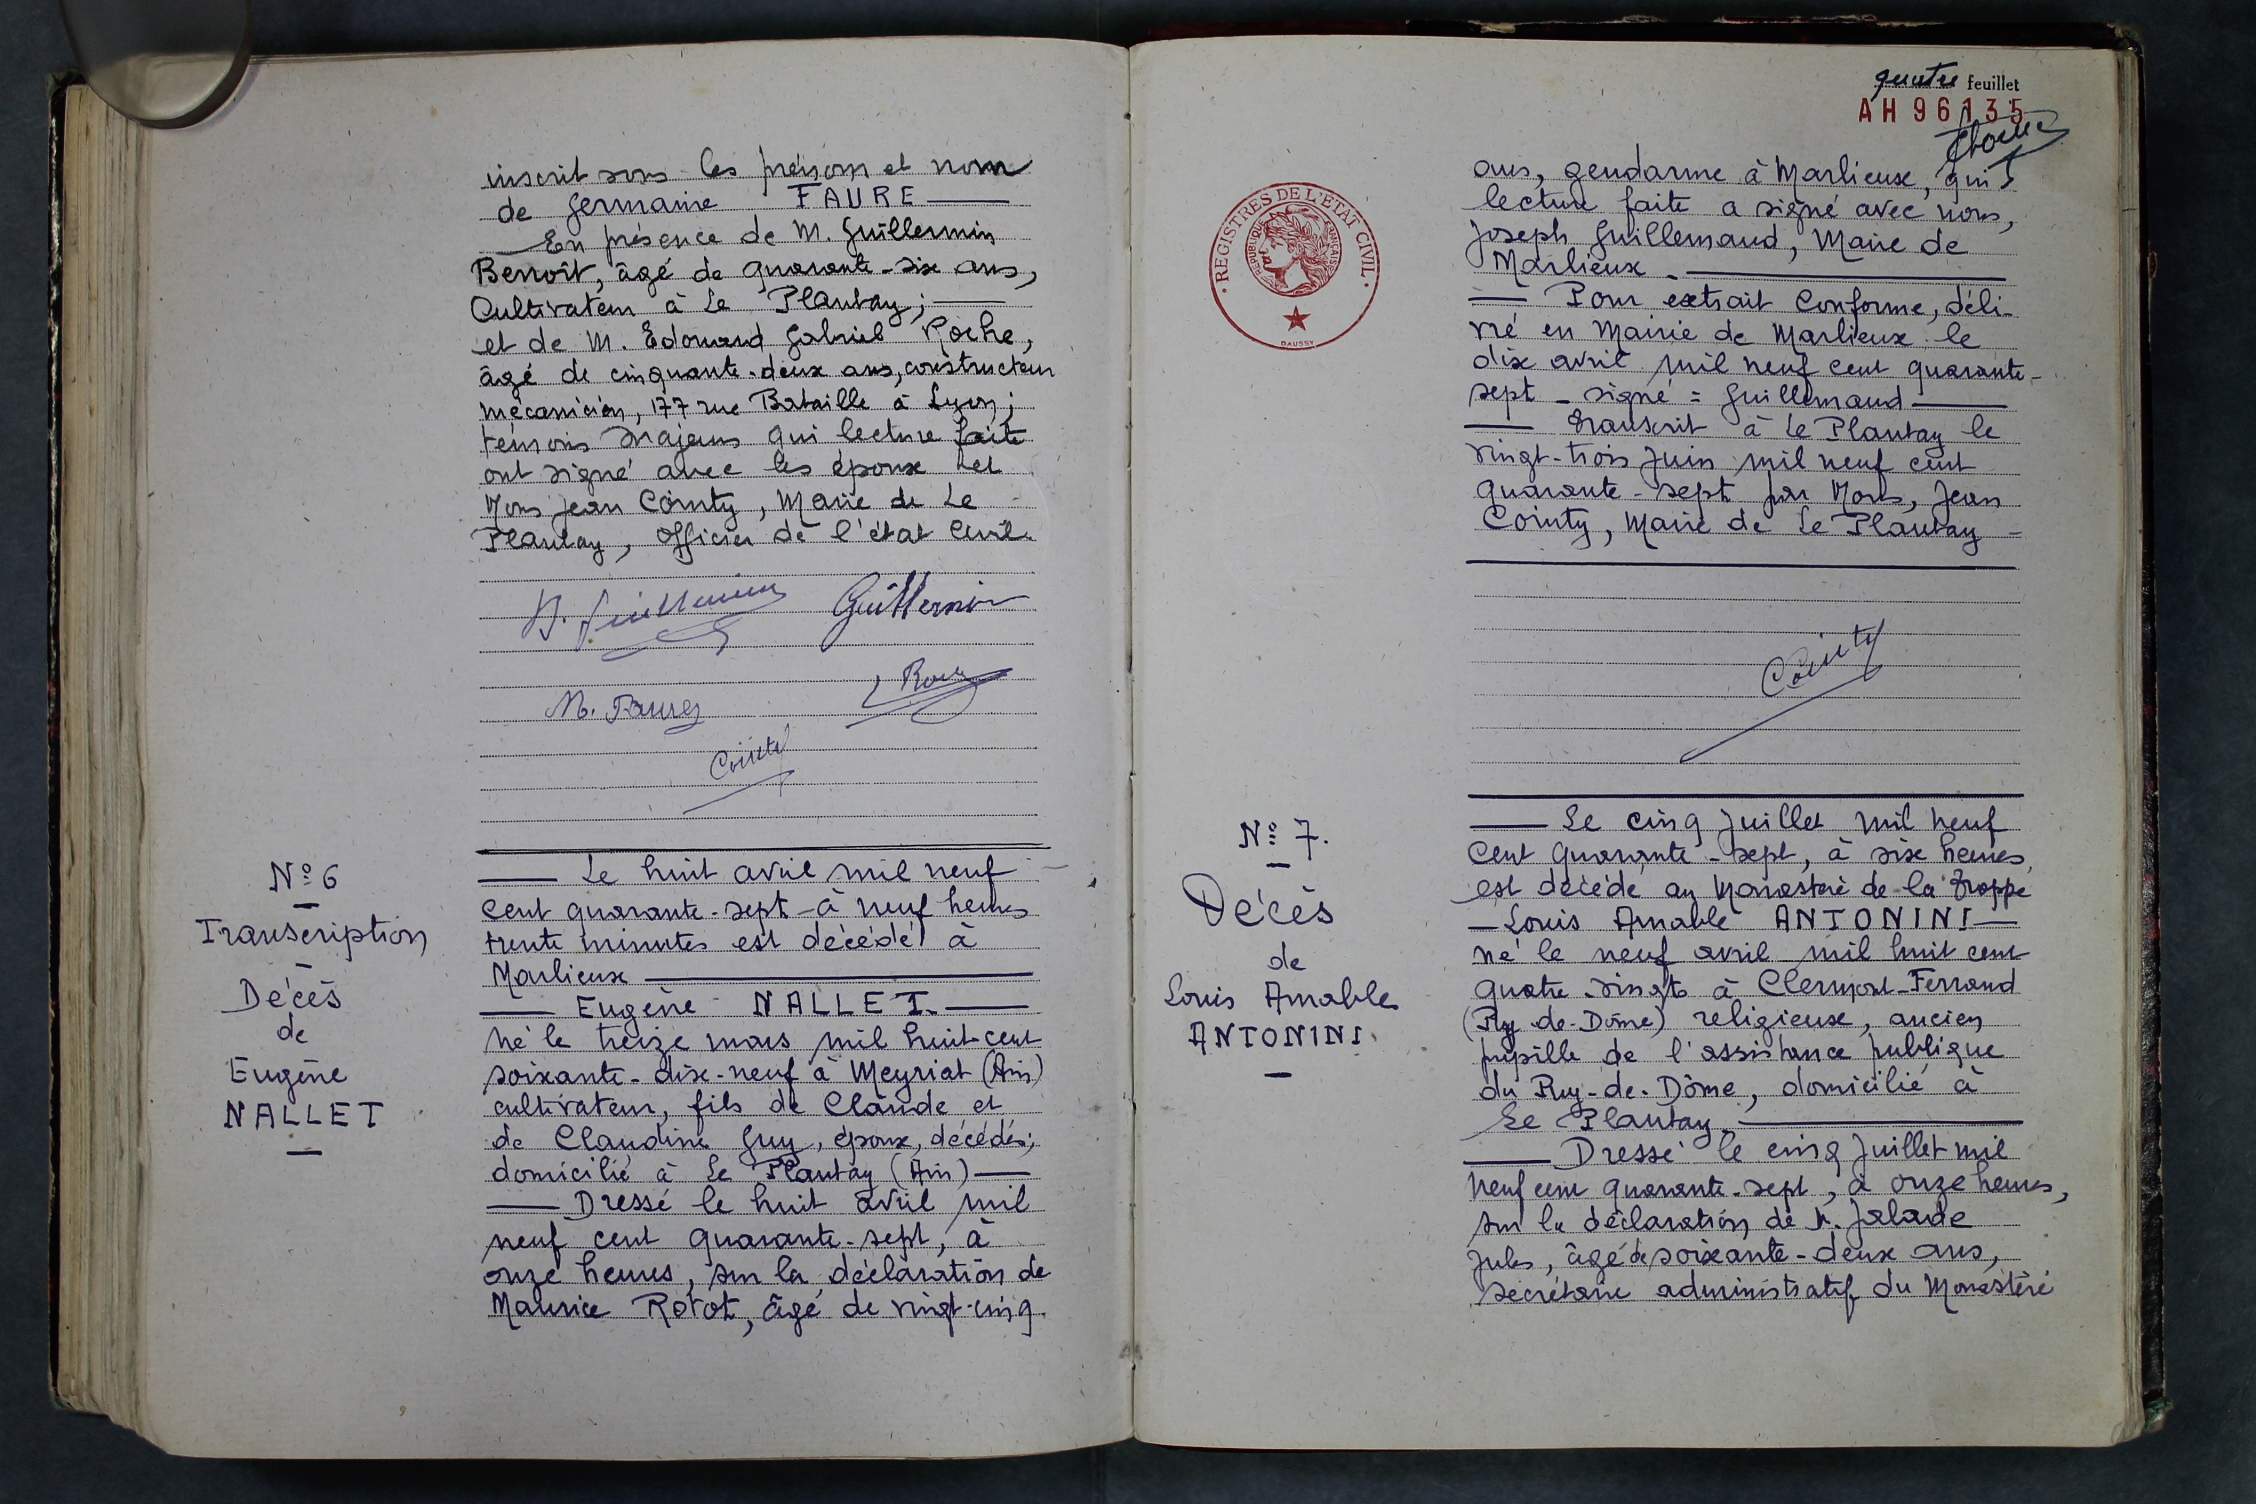 inscrit sous les prénom et nom
de Germaine FAURE
En présence de M. Guillermin
Benoît, âgé de quarante-six ans,
Cultivateur à Le Plantay;
et de M. Edouard Gabriel Roche,
âgé de cinquante-deux ans, constructeur
mécanicien, 177 rue Bataille à Lyon;
témoins majeurs qui lecture faite
ont signé avec les époux et
Nous Jean Cointy, Maire de Le
Plantay, Officier de l'état Civil.
Guillermin
M. Faure
Cointy
N° 6
Transcription
Décès
de
Eugène
NALLET
Le huit avril mil neuf
cent quarante-sept à neuf heures
trente minutes est décédé à
Marlieux
Eugène NALLET.
né le treize mars mil huit cent
soixante-dix-neuf à Meyriat (Ain)
cultivateur, fils de Claude et
de Claudine Guy, époux, décédés;
domicilié à Le Plantay (Ain)
Dressé le huit avril mil
neuf cent quarante-sept, à
onze heures, sur la déclaration de
Maurice Rotot, âgé de vingt-cinq
quatre feuillet
AH 96135
ans, gendarme à Marlieux, qui
lecture faite a signé avec nous,
Joseph Guillemaud, Maire de
Marlieux.
Pour extrait Conforme, déli-
vré en Mairie de Marlieux le
dix avril mil neuf cent quarante-
sept - signé = Guillemaud
Transcrit à Le Plantay le
vingt-trois Juin mil neuf cent
quarante-sept par Nous, Jean
Cointy, Maire de Le Plantay -
Cointy
REGISTRES DE L'ETAT CIVIL
REPUBLIQUE FRANÇAISE
DAUSSY
N° 7.
Décès
de
Louis Amable
ANTONINI
Le cinq Juillet mil neuf
cent quarante-sept, à six heures
est décédé au Monastère de la Trappe
Louis Amable ANTONINI
né le neuf avril mil huit cent
quatre-vingts à Clermont-Ferrand
(Puy-de-Dôme) religieux, ancien
pupille de l'assistance publique
du Puy-de-Dôme, domicilié à
Le Plantay.
Dressé le cinq Juillet mil
neuf cent quarante-sept, à onze heures,
sur la déclaration de M. Jalade
Jules, âgé de soixante-deux ans,
secrétaire administratif du Monastère